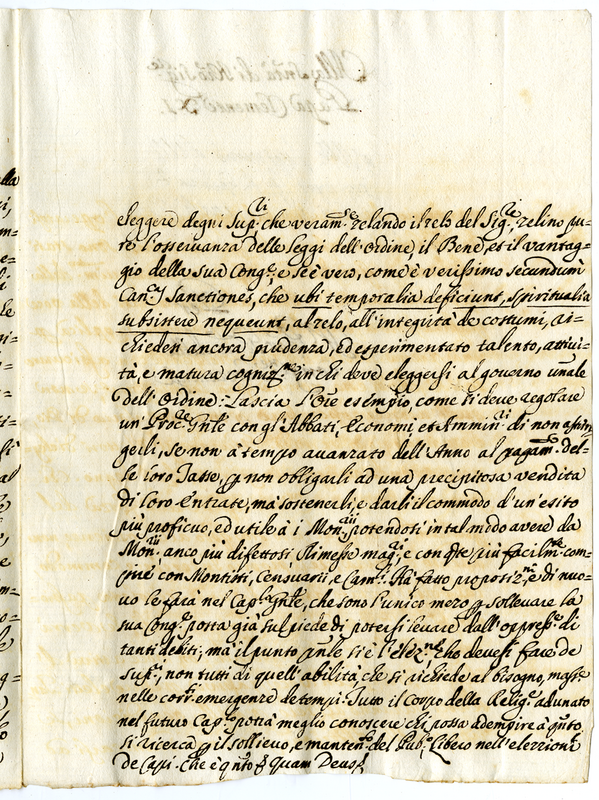 eleggere degni Sup.ri che veram.te zelando il zelo del Sig.re zelino pu-
re l'osservanza delle leggi dell'Ordine, il Bene, et il vantag-
gio della sua Cong.e, e se è vero, come è verissimo secundum
Can.s Sanctiones, che ubi temporalia deficiunt, Spiritualia
subsistere nequeunt, al zelo, all'integrità de costumi,
chiedesi ancora prudenza, ed esperimentato talento, attivi-
tà, e matura cogniz.ne in chi deve eleggersi al governo
dell'Ordine: Lascia esempio come si deve regolare
un Proc.re Gnle con gl'Abbati, Economi et Ammin.ri di non astrin-
gerli, se non à tempo avanzato dell'Anno al pagam.to del-
le loro Tasse, p non obligarli ad una precipitosa vendita
di loro Entrate, mà sostenerli, e darli il commodo d'un'esito
più proficuo, ed utile à i Mon.rii potendosi in tal modo avere da
Mon.rii anco più difettosi, Rimesse mag.ri, e con più facilm.te com-
pire con Montisti, Censuarii, e Cam.li. Hà fatto propositz.ne, e di nuo-
vo le farà nel Cap.lo Gnle, che sono l'unico mezo p sollevare la
sua Cong.e posta già sul piede di potersi levare dall'oppress.e di
tanti debiti; mà il punto si è l'elez.ne che devesi fare de
Sup.ri, non tutti di quell'abilità, che si richiede al bisogno, mass.e
nelle corr. emergenze de tempi. Tutto il Corpo della Relig.e adunato
nel futuro Cap.lo potrà meglio conoscere chi possa adempire à qnto
si ricerca p il sollievo, e manten.to del Pub.o libero nell'elezzione
de Capi. Che è qnto &c. Quam Deus &c.